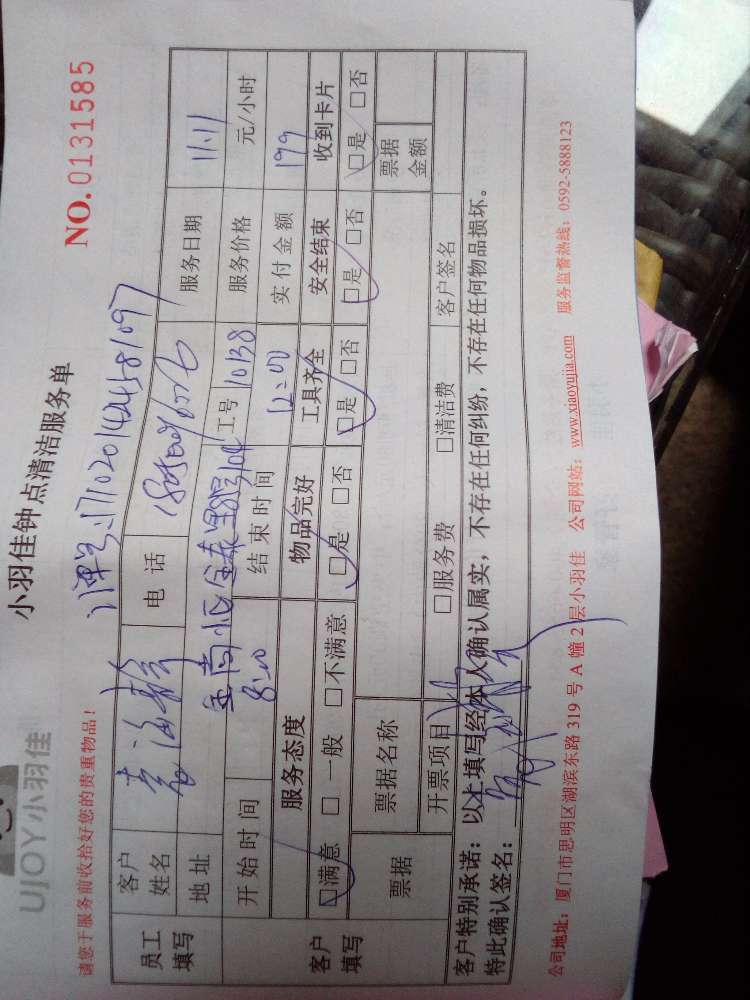 UJOY小羽佳
小羽佳钟点清洁服务单
请您于服务前收拾好您的贵重物品！
NO.0131585
171020142458109
员工填写
客户姓名
电话
服务日期 11.11
地址
工号 10138
服务价格 元/小时
客户填写
开始时间 8:00
结束时间 12:00
实付金额 199
服务态度 物品完好 工具齐全 安全结束 收到卡片
□满意 □一般 □不满意 □是 □否 □是 □否 □是 □否 □是 □否
票据
票据名称
票据金额
开票项目 □服务费 □清洁费 客户签名
客户特别承诺：以上填写经本人确认属实，不存在任何纠纷，不存在任何物品损坏。
特此确认签名：
公司地址：厦门市思明区湖滨东路 319 号 A 幢 2 层小羽佳 公司网站：www.xiaoyujia.com 服务监督热线：0592-5888123